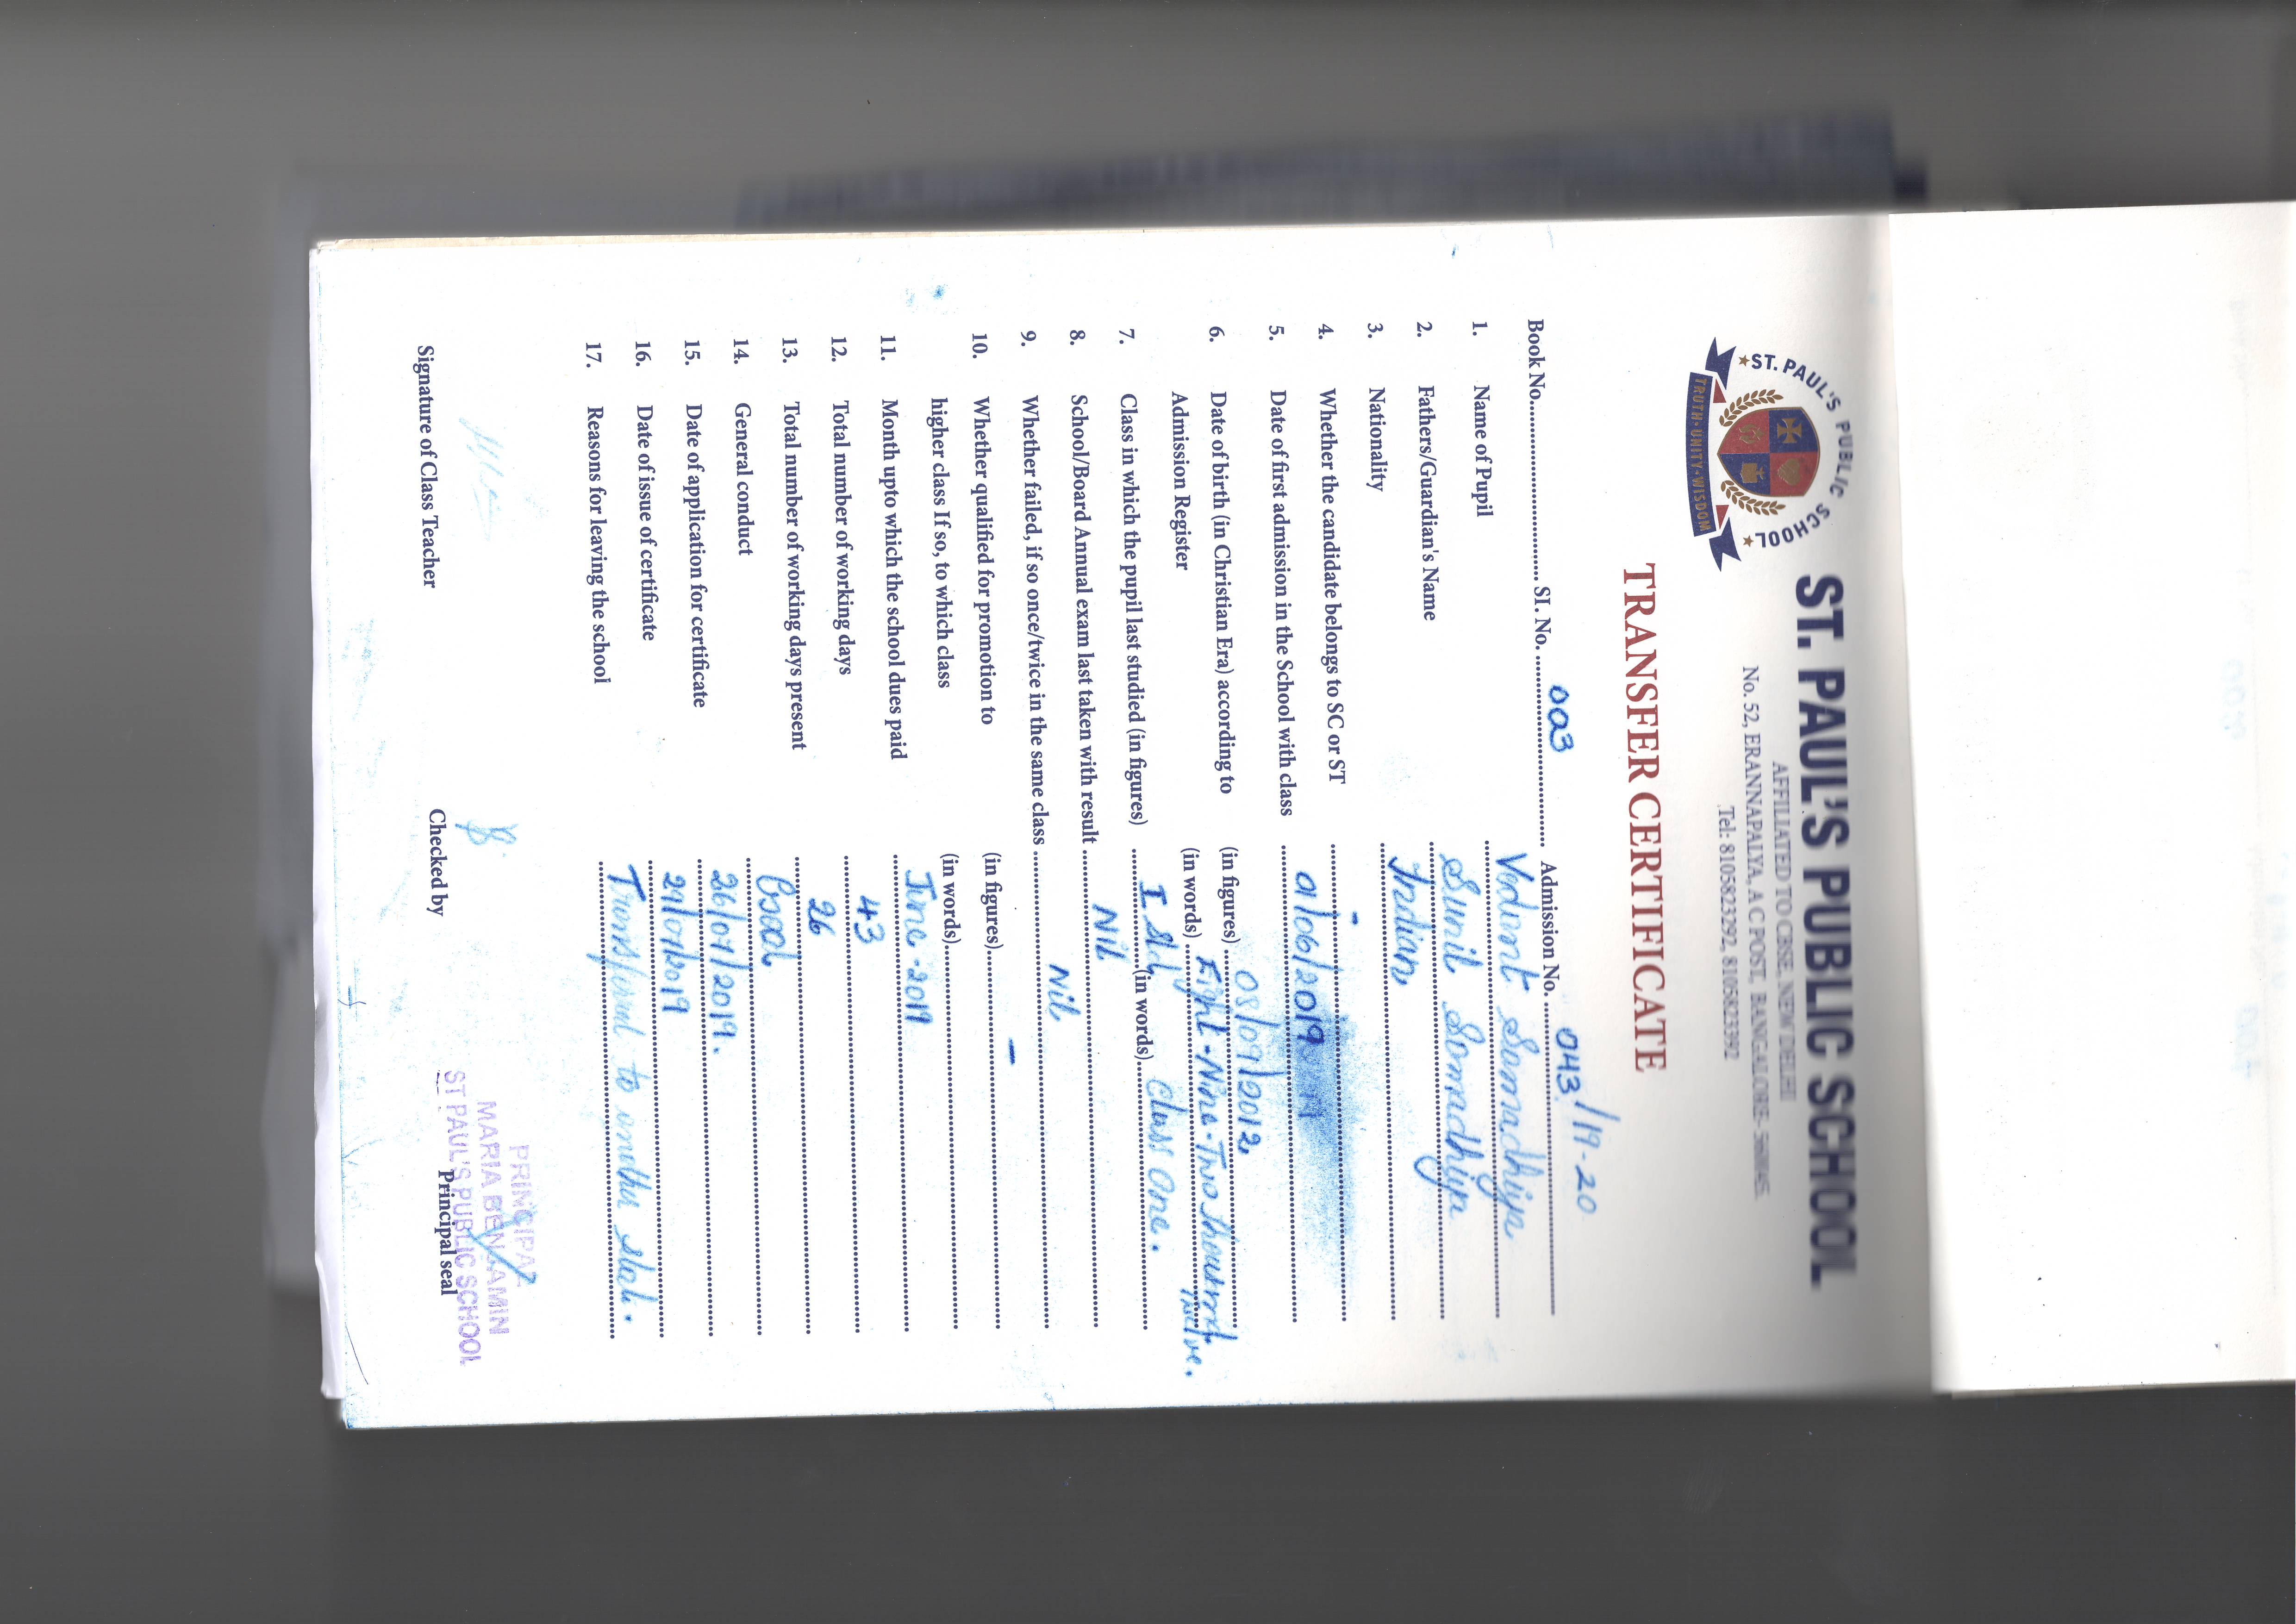 ST. PAUL'S PUBLIC SCHOOL
TRUTH·UNITY·WISDOM
ST. PAUL'S PUBLIC SCHOOL
AFFILIATED TO CBSE, NEW DELHI
No. 52, ERANNAPALYA, A C POST, BANGALORE- 560045.
Tel: 8105823292, 8105823392
TRANSFER CERTIFICATE
Book No. SI. No. 003 Admission No. 043/19-20
1. Name of Pupil Vediant Samadhiya
2. Fathers/Guardian's Name Sunil Samadhiya
3. Nationality Indian
4. Whether the candidate belongs to SC or ST -
5. Date of first admission in the School with class 01/06/2019
6. Date of birth (in Christian Era) according to (in figures) 08/09/2012
Admission Register (in words) Eight-Nine-Two thousand Twelve.
7. Class in which the pupil last studied (in figures) I Std (in words) Class One.
8. School/Board Annual exam last taken with result Nil
9. Whether failed, if so once/twice in the same class Nil
10. Whether qualified for promotion to (in figures) -
higher class If so, to which class (in words)
11. Month upto which the school dues paid June-2019
12. Total number of working days 43
13. Total number of working days present 26
14. General conduct Good
15. Date of application for certificate 26/07/2019.
16. Date of issue of certificate 29/07/2019
17. Reasons for leaving the school to another state.
PRINCIPAL
MARIA BENJAMIN
ST PAUL'S PUBLIC SCHOOL
Signature of Class Teacher Checked by Principal seal